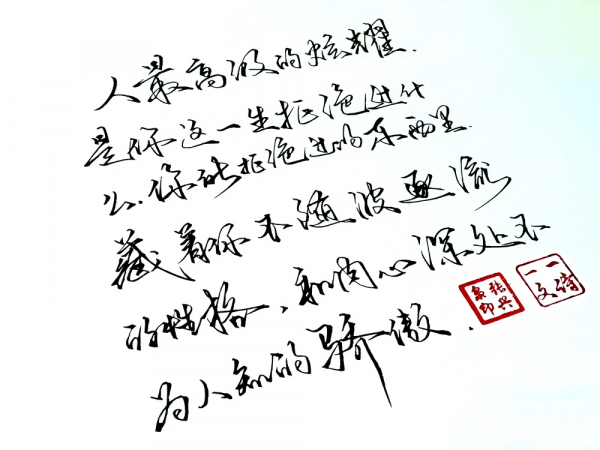 人最高级的炫耀.
是你这一生拒绝过什
么.你所拒绝过的东西里
藏着你不随波逐流
的性格,和内心深处不
为人知的骄傲.
一一
文诗